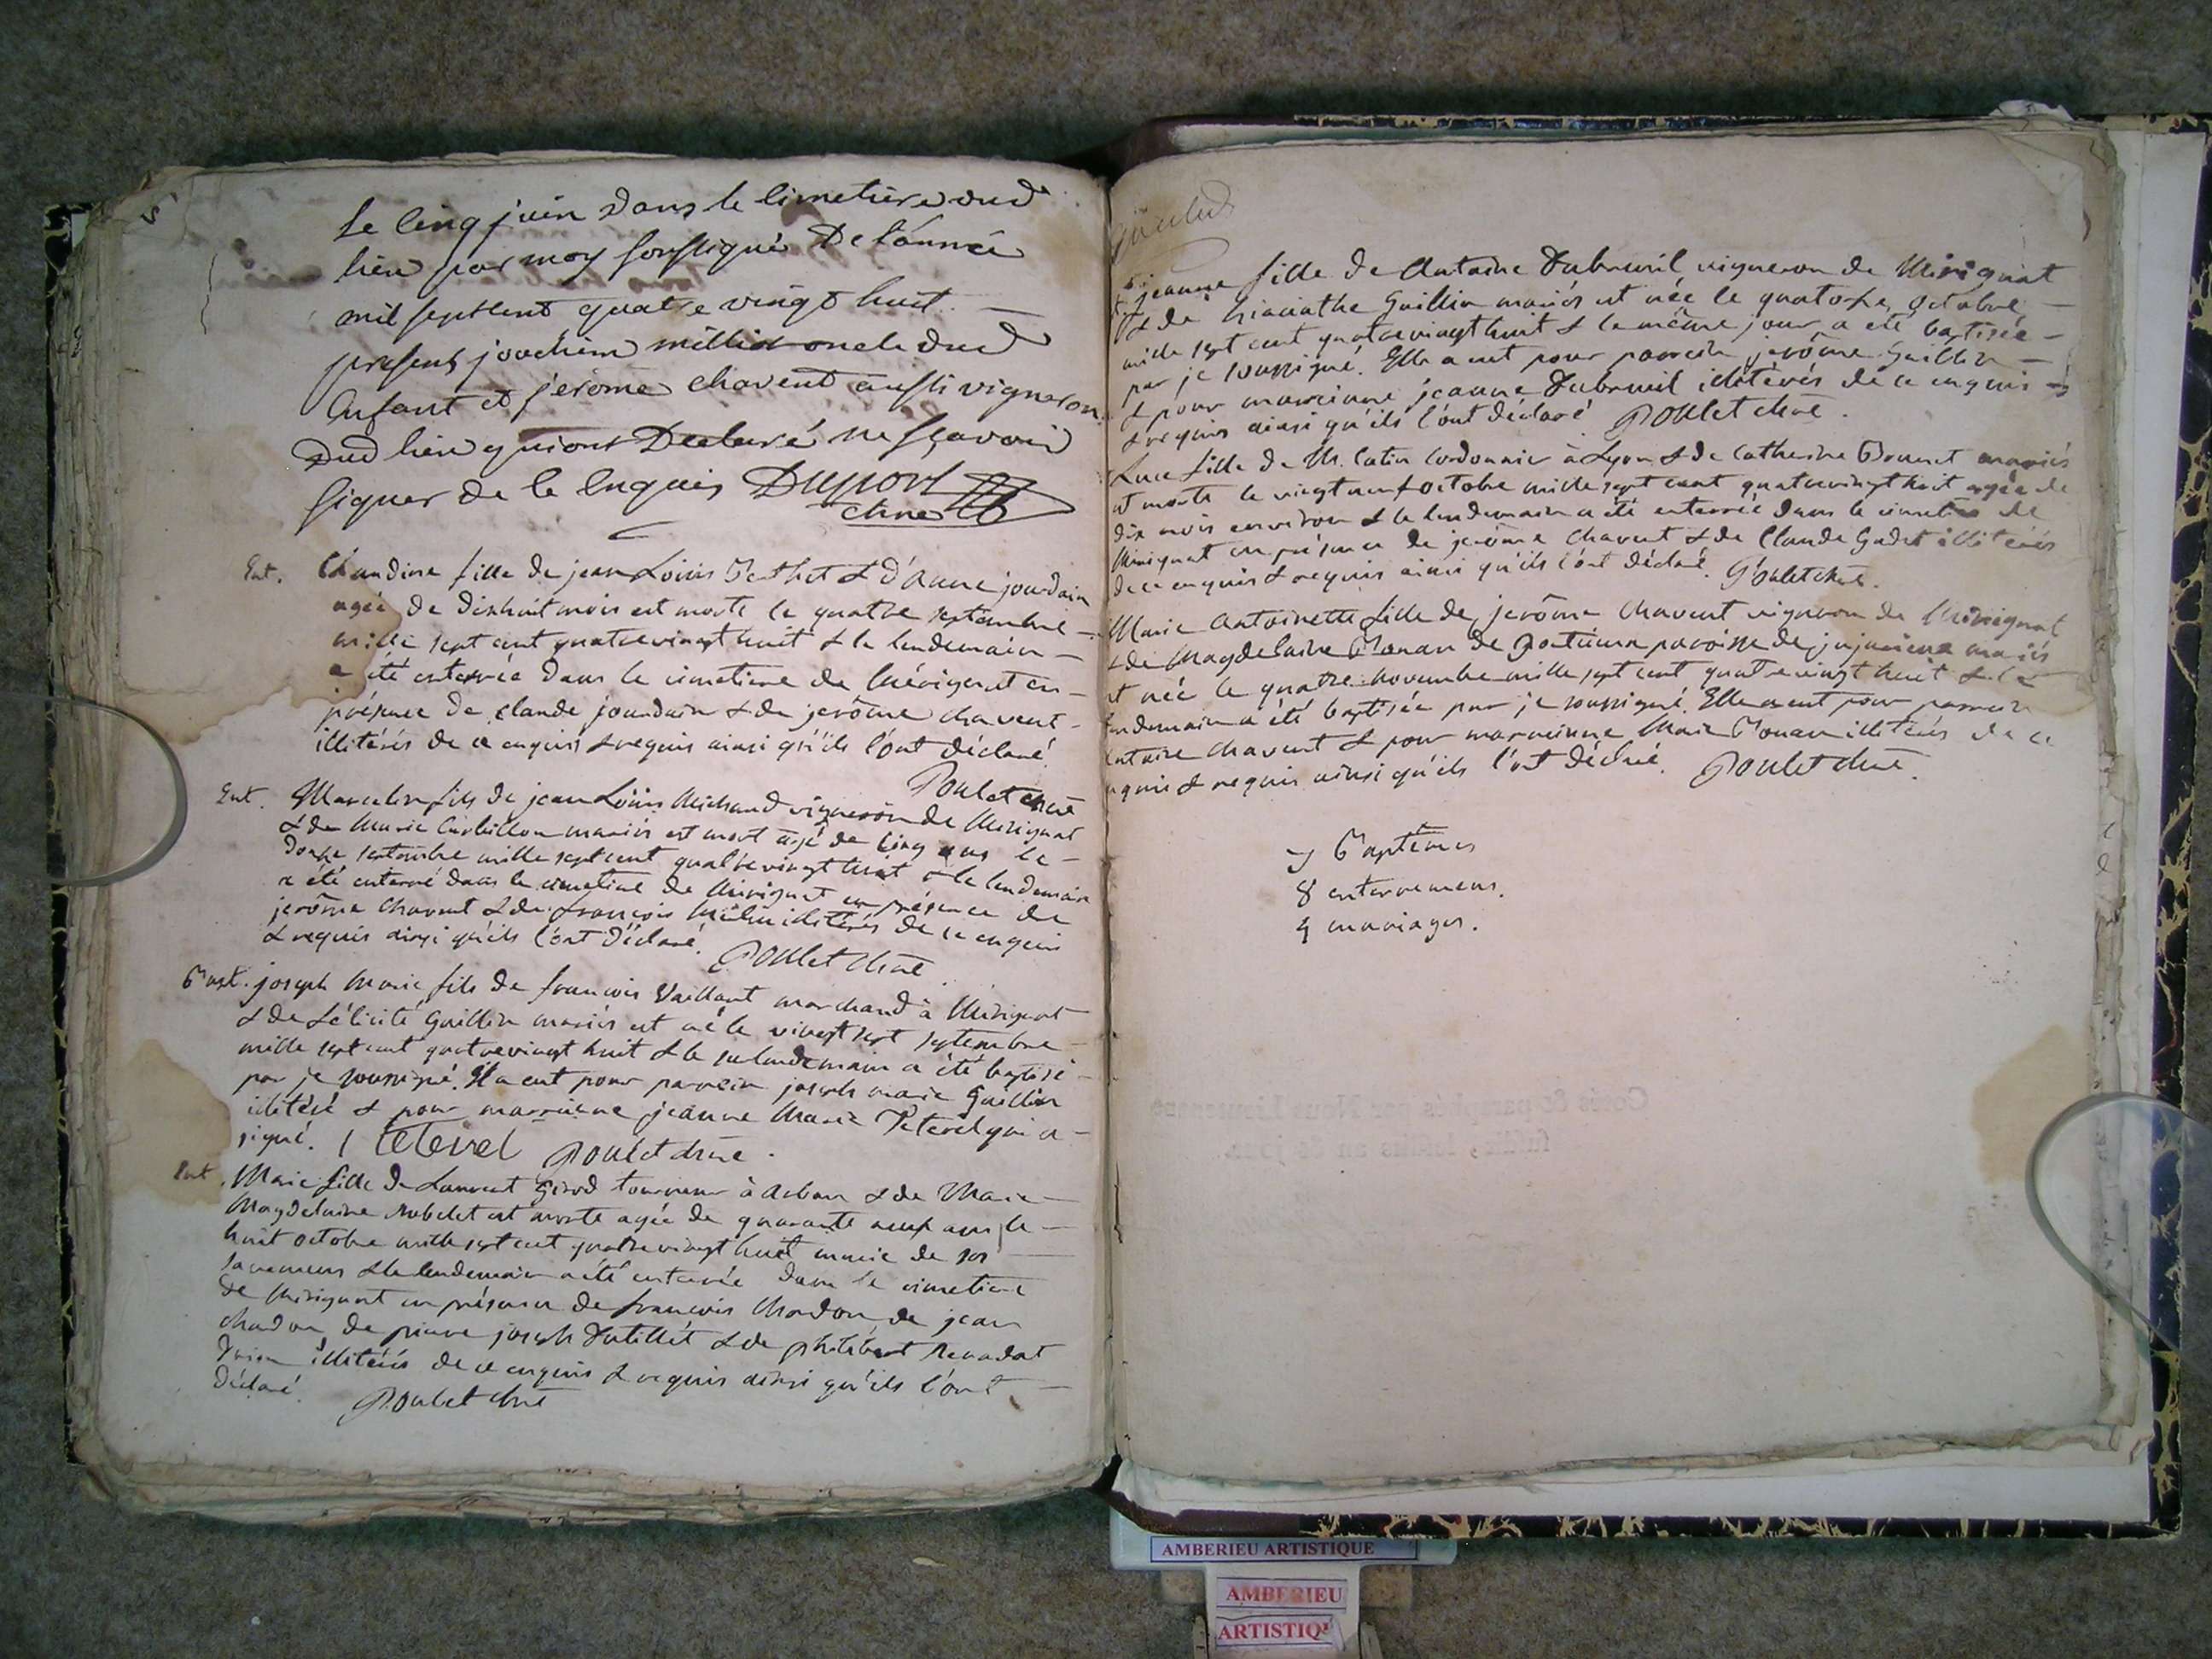 Le cinq juin dans le cimetiere dud
lieu par moy soussigné De lánnée
mil septcent quatre vingt huit
present joachim millict oncle dud
Enfant et jerome chavent aussi vigneron
dud lieu qui ont Declaré ne sçavoir
signer de ce Enquis Duport
chne
Ent. Claudine fille de jean Loüis Berthet & d'Anne jourdain
agée de dixhuit mois est morte le quatre septembre
mille sept cent quatrevingt huit & le lendemain
a été enterrée dans le cimetiere de Mérignat en
présence de claude jourdain & de jerôme chavent
illitérés de ce enquis & requis ainsi qu'ils l'ont déclaré.
Poulet chne
Ent. Marcelin fils de jean Loüis Michaud vigneron de Mérignat
& de Marie Curbillon mariés est mort agé de cinq ans le
douze septembre mille septcent quatrevingt huit & le lendemain
a été enterré dans le cimetiere de Mérignat en présence de
jerôme chavent & de francois illitérés de ce enquis
& requis ainsi qu'ils l'ont déclaré. Poulet chne
Bapt. joseph Marie fils de francois Vaillant marchand à Mérignat
& de félicité Guillin mariés est né le vingt sept septembre
mille sept cent quatrevingt huit & le surlendemain a été baptisé
par je soussigné. Il a eut pour parrein joseph marie Guillin
illitéré & pour marreinne jeanne Marie Tetevel qui a
signé. J tetevel Poulet chne.
Ent. Marie fille de Laurent Girod tourneur à Arban & de Marie
Magdelaine Nobelet est morte agée de quarante neuf ans le
huit octobre mille sept cent quatrevingt huit munie de ses
sacremens & le lendemain a été enterrée dans le cimetiere
de Mérignat en présence de francois Chardon de jean
chardon de pierre joseph Dutillét & de philibert Renadat
illitérés de ce enquis & requis ainsi qu'ils l'ont
déclaré. Poulet chne
jeanne fille de Antoine Dubreuil vigneron de Mérignat
& de hiacinthe Guillin mariés est née le quatorze octobre
mille sept cent quatrevingt huit & le même jour a été baptisée
par je soussigné. Elle a eut pour parrein jerôme Guillin
& pour marreinne jeanne Dubreuil illitérés de ce enquis
& requis ainsi qu'ils l'ont déclaré. Poulet chne.
Luce fille de M. Catin Cordonnier à Lyon & de Catherine Bouvret mariés
est morte le vingt neuf octobre mille sept cent quatrevingt huit agée de
dix mois environ & le lendemain a été enterrée dans le cimetiere de
Mérignat en présence de jerôme chavent & de Claude Gadet illitérés
de ce enquis & requis ainsi qu'ils l'ont déclaré. Poulet chne.
Marie Antoinette fille de jerôme Chavent vigneron de Mérignat
& de Magdelaine Bonan de paroisse de jujurieux mariés
est née le quatre novembre mille sept cent quatrevingt huit & le
lendemain a été baptisée par je soussigné. Elle a eut pour parrein
Antoine Chavent & pour marreinne Marie Bonan illitérés de ce
enquis & requis ainsi qu'ils l'ont déclaré. Poulet chne.
Baptêmes
8 enterremens.
4 mariages.
AMBERIEU ARTISTIQUE
AMBERIEU
ARTISTIQ